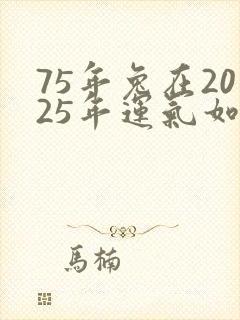 75年兔在20
25年運氣如
馬楠